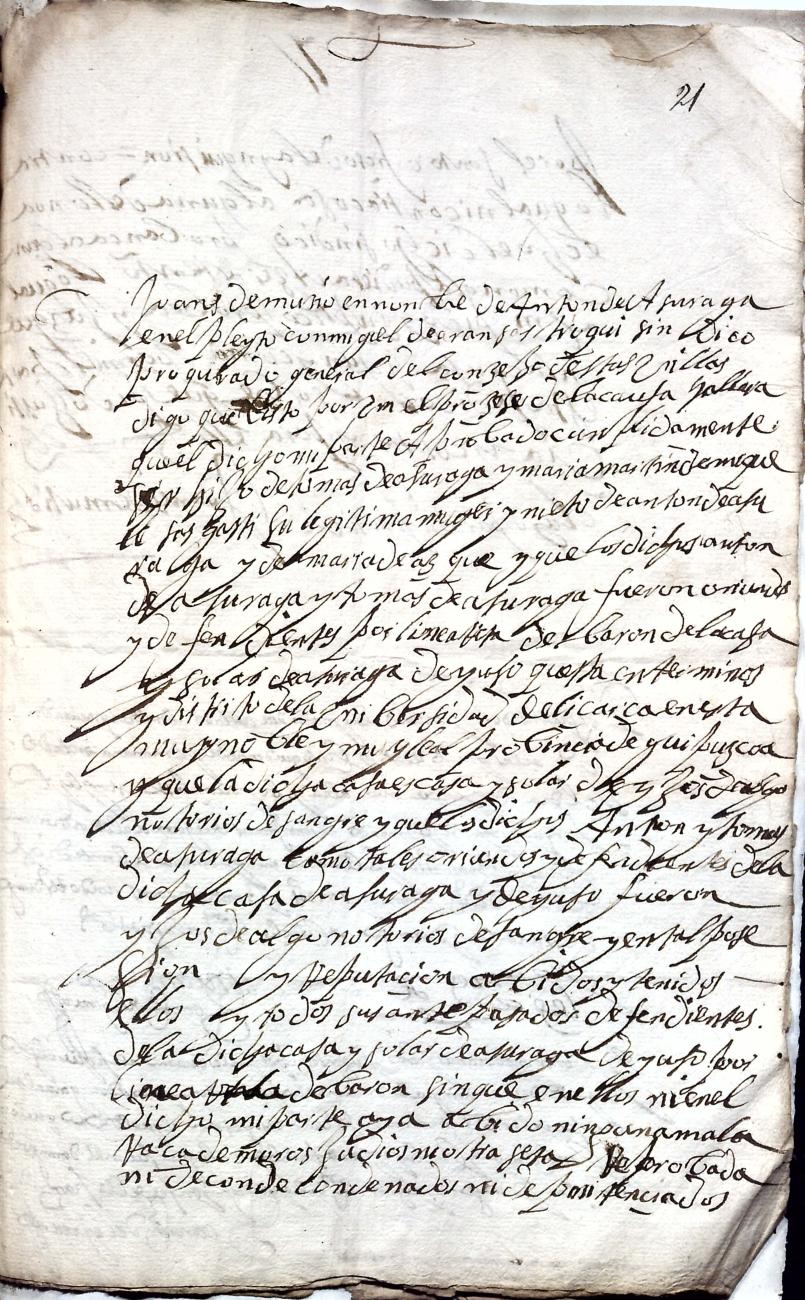 21
Joanes de murio en nonbre de Anton de Asuraga
en el pleyto con miguel de aransasstroqui sin dico
procurador general del conzejo destas villas
digo que visto por vm el proçeso de la causa hallara
que el dicho mi parte A probado cunplidamente
ser hijo de tomas de asuraga y maria martin de
su legitima muger y nieto de anton de asu
raga y de maria de az que y que los dichos anton
de asuraga y tomas de asuraga fueron oriundos
y desendientes por linea reta de baron de la casa
y solar de asuraga de yuso questa en terminos
y distrito de la unibersidad de licarça en esta
muy noble y muy leal probinçia de guipuzcoa
y que la dicha casa es casa y solar de yjos dealgo
notorios de sangre y que los dichos Anton y tomas
de asuraga como tales oriundos y desendientes de la
dicha casa de asuraga y de yuso fueron
yjos dealgo notorios de sangre y en tal pose
sion y Reputacion abidos y tenidos
ellos y todos sus antepasados desendientes
de la dicha casa y solar de asuraga de yuso por
linea de baron sin que en ellos ni en el
dicho mi parte aya abido ninguna mala
Raca de moros judios ni otra seta Reprobada
ni de conde condenados ni de penitençiados